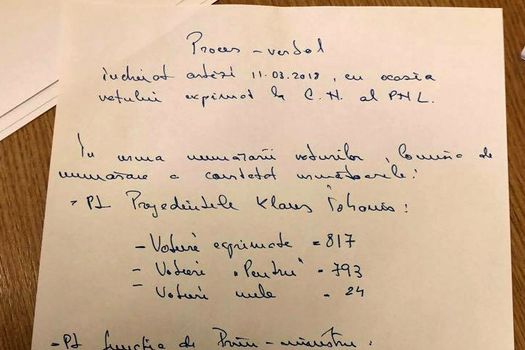 Proces-verbal
încheiat astăzi 11.03.2018, cu ocazia
votului exprimat la C.N. al PNL.
În urma numărării voturilor, Comisia de
numărare a constatat următoarele:
- Pt Președintele Klaus Iohannis:
- Voturi exprimate = 817
- Voturi "Pentru" - 793
- Voturi nule - 24
- Pt funcția de Prim-ministru: